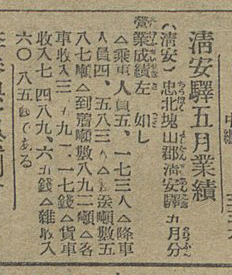 清安驛五月業績
(清安)忠北塊山郡清安驛五月分
營業成績左 如し
△乘車人員五、一七三人△降車
人員四、五八三人△ 送噸數五
八七噸△到着噸數八九二噸△各
車收入三 九一 一七錢△貨車
收入七四八九、六五錢△雜收入
六〇 八五 である